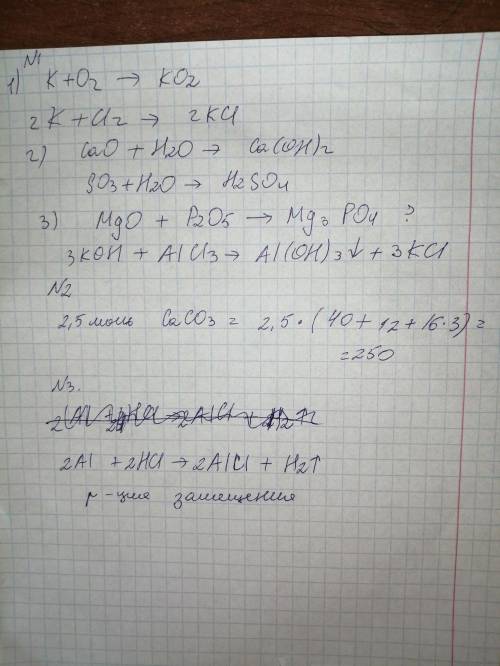 N1
1) K+O2 → KO2
2K+Cl2 → 2KCl
2) CaO + H2O → Ca(OH)2
SO3+H2O → H2SO4
3) MgO + P2O5 → Mg3 PO4 ?
3KOH + AlCl3 → Al(OH)3↓ + 3KCl
N2
2,5 моль CaCO3 = 2,5·(40+12+16·3)=
=250
N3.
2Al +2HCl → 2AlCl + H2↑
р-ция замещения